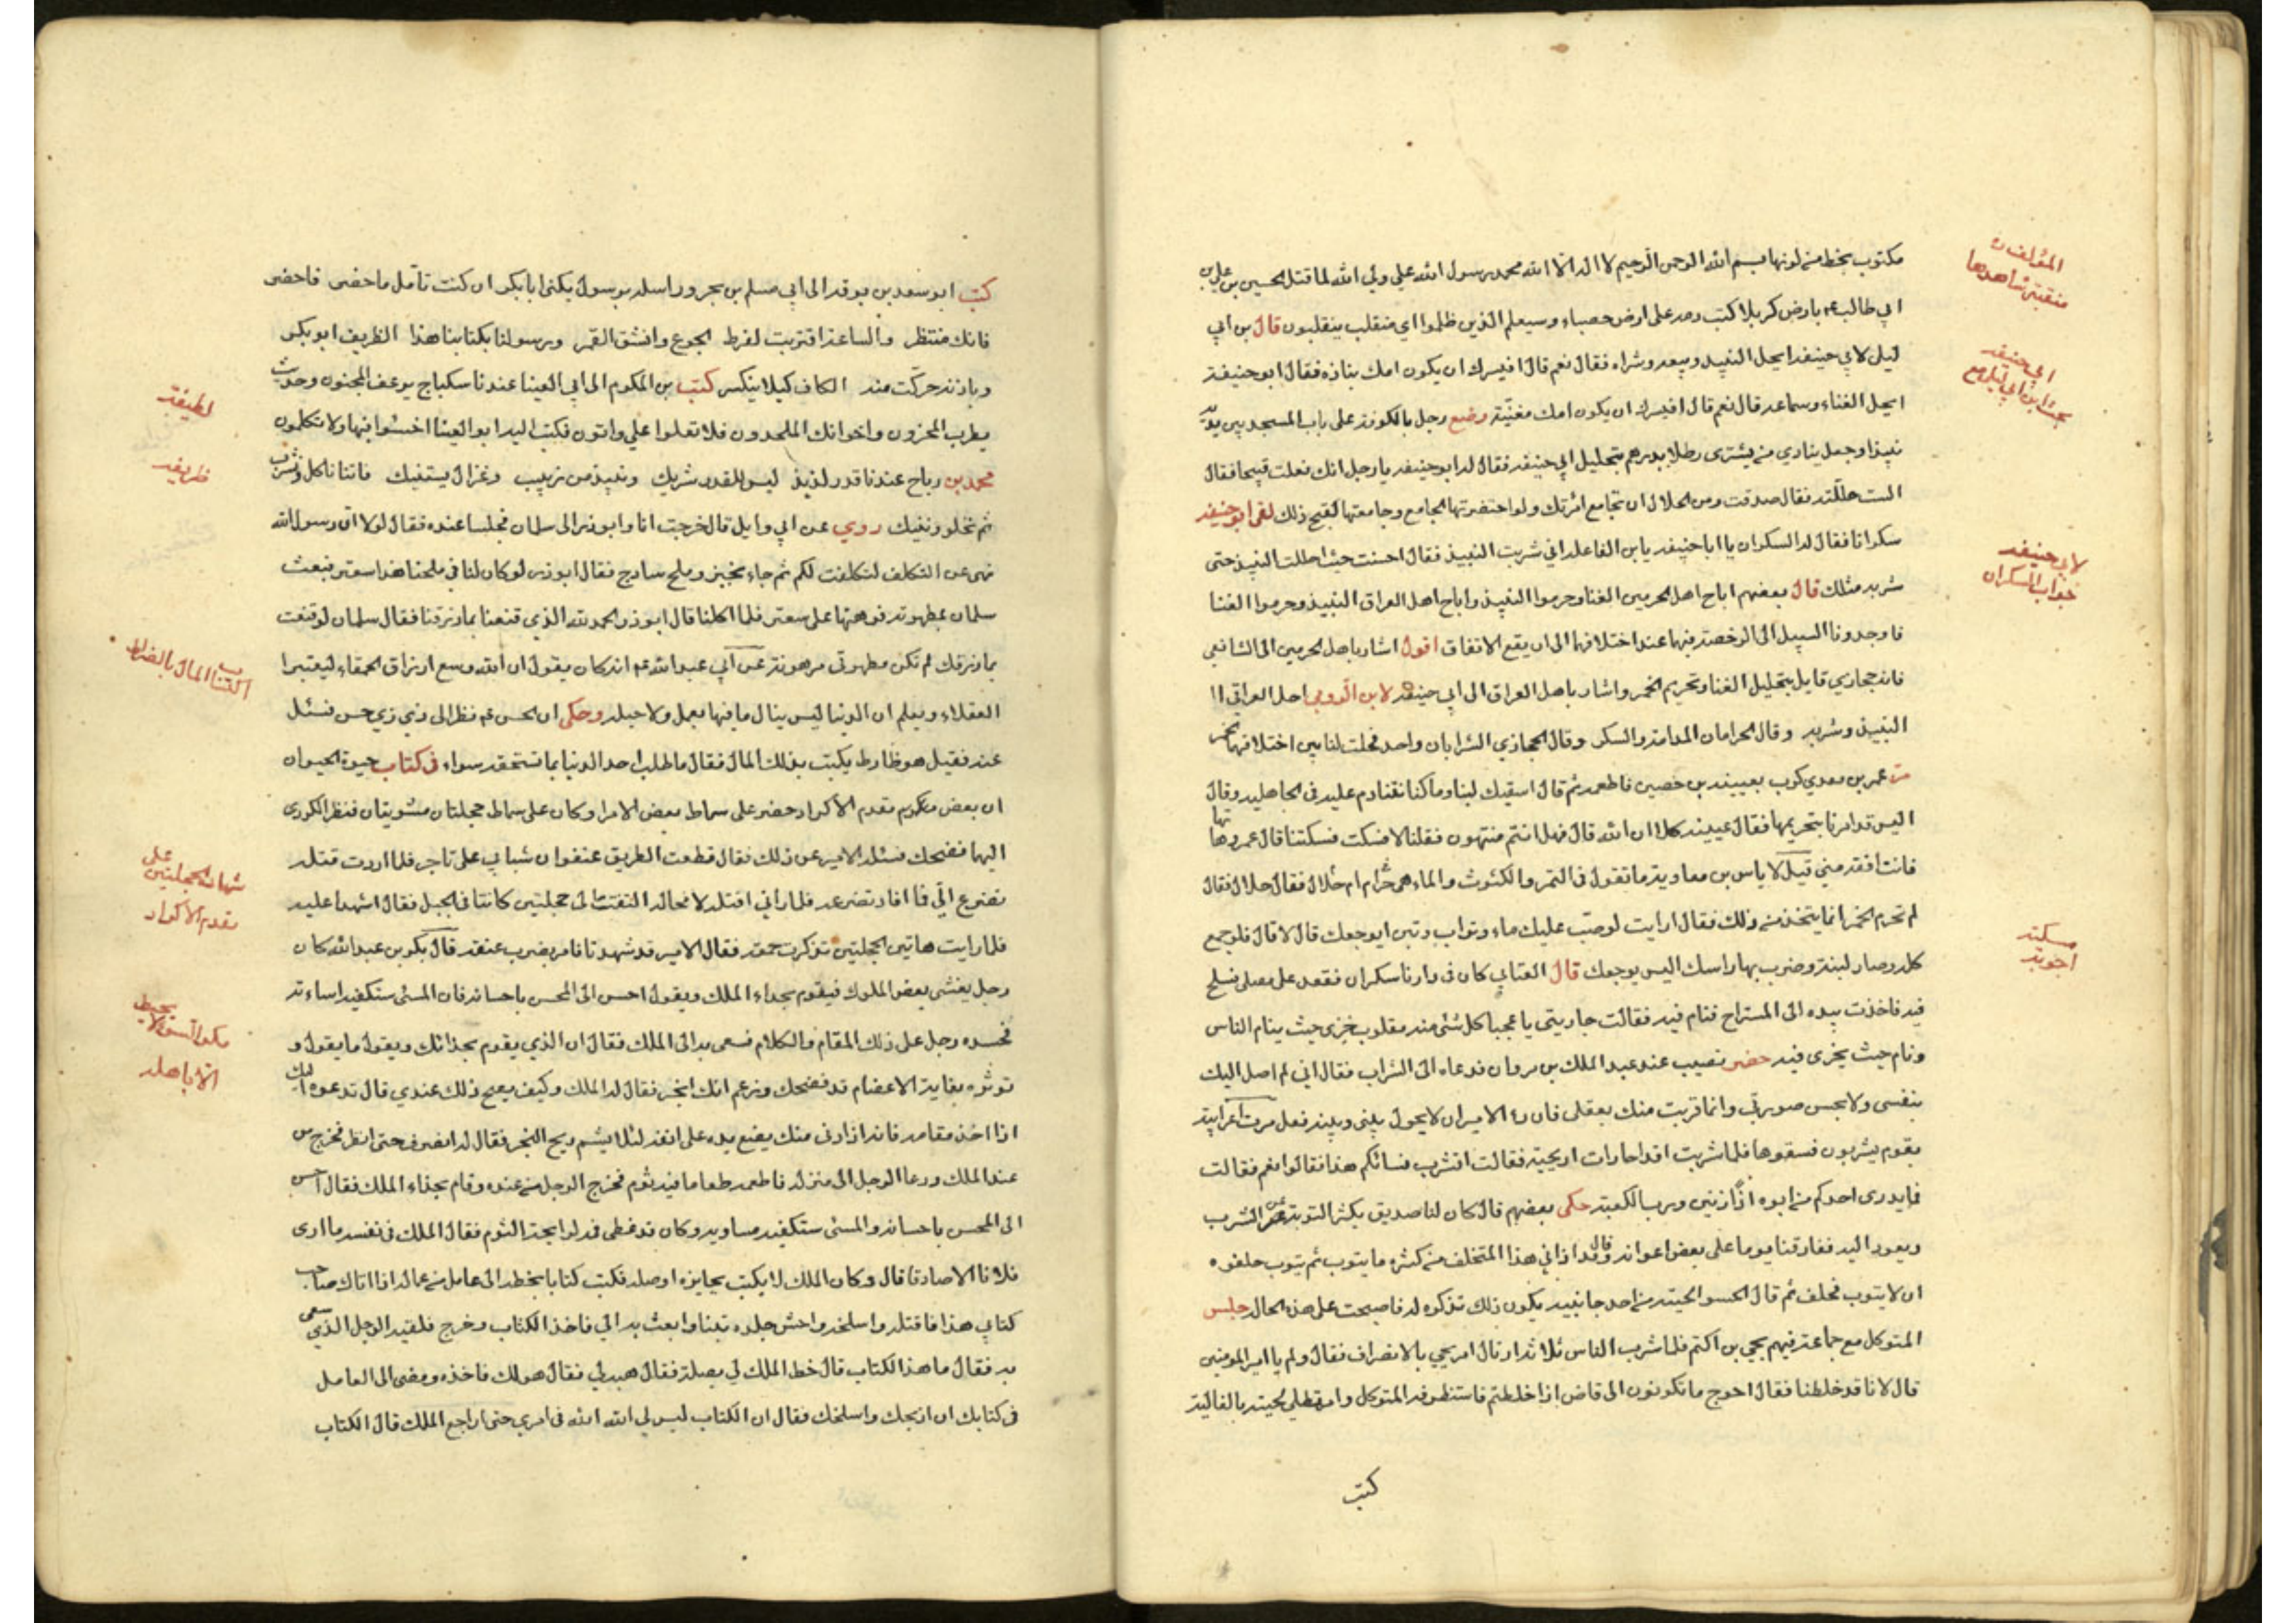 المؤلف ره
منقبة شاهدها
مكتوب بخط من لونها بسم الله الرحمن الرحيم لا اله الا الله محمد رسول الله علي ولي الله لما قتل الحسين بن علي بن
ابي طالب ع م بارض كربلا كتب دمه على ارض حصباء وسيعلم الذين ظلموا اي منقلب ينقلبون قال بن ابي
ابي حنيفه
بحث ابن ابي ليلى مع
ليلى لابي حنيفه ايحل النبيذ وبيعه وشراه فقال نعم قال افيسرك ان يكون امك نباذه فقال ابو حنيفة
ايحل الغناء وسماعه قال نعم قال افيسرك ان يكون امك مغنية وضع رجل بالكوفة على باب المسجد بين يديه
نبيذا وجعل ينادي من يشترى رطلا بدرهم بتحليل ابي حنيفه فقال له ابو حنيفه يا رجل انك فعلت قبيحا فقال
الست حللته فقال صدقت ومن الحلال ان تجامع امرئتك ولو احتضرتها الجامع وجامعتها لقبح ذلك لقى ابو حنيفه
لابي حنيفه
جواب السكران
سكرانا فقال له السكران يا ابا حنيفه يا بن الفاعله اني شربت النبيذ فقال احسنت حيث احللت النبيذ حتى
شربه مثلك قال بعضهم اباح اهل الحرمين الغنا وحرموا النبيذ واباح اهل العراق النبيذ وحرموا الغنا
فاوجدونا السبيل الى الرخصة فيهما عند اختلافهما الى ان يقع الاتفاق اقول اشار باهل الحرمين الى الشافعي
فانه حجازي قايل بتحليل الغنا وتحريم الخمر واشار باهل العراق الى ابي حنيفه لابن الرومي احل العراقي
النبيذ وشربه وقال الحرامان المدامة والسكر وقال الحجازي الشرابان واحد فحلت لنا بين اختلافهما الخمر
عمر بن معدي كرب بعيينه بن حصين فاطعمه ثم قال اسقيك لبنا وما كنا نتنادم عليه في الجاهليه وقال
اليس قد امرنا بتحريمها فقال عيينه كلا ان الله قال فهل انتم منتهون فقلنا لا فسكت فسكتنا قال عمرو هاتها
فانت افقه مني قيل لاياس بن معاوية ما تقول في التمر والكشوث والماء هي حرام ام حلال فقال حلال فقال
مسكته
اجوبه
لم تحرم الخمر انما يتخذ من ذلك فقال ارايت لو صب عليك ماء وتراب وتبن ايوجعك قال لا قال فلو جمع
كله وصار لبنة وضرب بها راسك اليس يوجعك قال العتابي كان في دارنا سكران فقعد على مصلى فسلح
فيه فاخذت بيده الى المستراح فنام فيه فقالت جاريتي يا عجبا كل شئ منه مقلوب خرى حيث ينام الناس
ونام حيث يخرى فيه حضر نصيب عند عبد الملك بن مروان فدعاه الى الشراب فقال اني لم اصل اليك
بنفسى ولا بحسن صورتي وانما قربت منك بعقلى فان راى الامير ان لا يحول بيني وبينه فعل مرت اعرابية
بقوم يشربون فسقوها فلما شربت اقداحا رات اريحية فقالت اتشرب نسائكم هذا فقالوا نعم فقالت
فما يدرى احدكم من ابوه اذا زنين ورب الكعبة حكى بعضهم قال كان لنا صديق يكثر التوبة عن الشرب
ويعود اليه ففارقنا يوما على بعض اعوانه وقال قد اذاني هذا المتخلف من كثرة ما يتوب ثم يتوب حلفوه
ان لا يتوب فحلف ثم قال اكسوا لحيته من احد جانبيه يكون ذلك تذكره له فاصبحت على هذه الحال جلس
المتوكل مع جماعة فيهم يحيى بن اكتم فلما شرب الناس ثلاثة ادتال امر يحيى بالانصراف فقال ولم يا امير المومنين
قال لانا قد خلطنا فقال احوج ما تكونون الى قاض اذا خلطتم فاستظرفه المتوكل وامر بطلي لحيته بالغالية
كتب
كتب ابو سعد بن بوقه الى ابي مسلم بن بحر وراسله برسول يكنى ابا بكر ان كنت تأمل ما حضر فاحضر
فانك منتظر والساعة اقتربت لفرط الجوع وانشق القمر وبرسولنا بكتابنا هذا الظريف ابو بكر
لطيفة
وباذنه حركت منه الكاف كيلا ينكسر كتب بن المكرم الى ابي العينا عندنا سكباج يرعف المجنون وحديث
يطرب المحزون واخوانك الملحدون فلا تعلوا علي واتون فكتب اليه ابو العينا اخسئوا فيها ولا تكلمون
ظريفه
محمد بن رباح عندنا قدر لذيذ ليس للقدر شريك ونبيذ من زبيب وغزال يستفيك فاتنا ناكل ونشرب
ثم نخلو ونفيك روي عن ابي وايل قال خرجت انا وابو ذر الى سلمان فجلسنا عنده فقال لولا ان رسول الله
نهى عن التكلف لتكلفت لكم ثم جاء بخبز وملح سادج فقال ابو ذر لو كان لنا في ملحنا هذا سعتر فبعث
سلمان بمطهرته فرهنها على سعتر فلما اكلنا قال ابو ذر الحمد لله الذي قنعنا بما رزقنا فقال سلمان لو قنعت
اكتساب المال بالضراط
بما رزقك لم تكن مطهرتي مرهونة عن ابي عبد الله ع م انه كان يقول ان الله وسع ارزاق الحمقاء ليعتبرا
العقلاء ويعلم ان الدنيا ليس ينال ما فيها بعمل ولا حيله وحكى ان الحسن ع م نظر الى ذي زي حسن فسئل
عنه فقيل هو ظارط يكتب بذلك المال فقال ما طلب احد الدنيا بما تستحقه سواه في كتاب حيوة الحيوان
ان بعض متكرم مقدم الاكراد حضر على سماط بعض الامرا وكان على سماط حجلتان مشويتان فنظر الكردى
شهادة الحجلتين على
مقدم الاكراد
اليها فضحك فسئله الامير عن ذلك فقال قطعت الطريق عنفوان شبابي على تاجر فلما اردت قتله
تضرع الي فما افاد تضرعه فلما رآني اقتله لا محاله التفت الى حجلتين كانتا في الجبل فقال اشهدا عليه
فلما رايت هاتين الحجلتين تذكرت حمقه فقال الامير قد شهدتا فامر بضرب عنقه قال بكر بن عبد الله كان
رجل يغشى بعض الملوك فيقوم بحداء الملك ويقول احسن الى المحسن باحسانه فان المسئ ستكفيه اساءته
مكر السوء لا يحيط
الا باهله
فحسده رجل على ذلك المقام والكلام فسعى به الى الملك فقال ان الذي يقوم بحذائك ويقول ما يقول و
توثره بغاية الاعضام قد فضحك وزعم انك ابخر فقال له الملك وكيف يصح ذلك عندي قال تدعوه اليك
اذا اخذ مقامه فانه اذا دنى منك يضع يده على انفه لئلا يشم ريح البخر فقال له انصرف حتى انظر فخرج من
عند الملك ودعا الرجل الى منزله فاطعمه طعاما فيه ثوم فخرج الرجل من عنده وقام بحذاء الملك فقال احسن
الى المحسن باحسانه والمسئ ستكفيه مساويه وكان قد غطى فمه لرايحة الثوم فقال الملك في نفسه ما ارى
فلانا الا صادقا قال وكان الملك لا يكتب بجايزه او صله فكتب كتابا بخطه الى عامل من عماله اذا اتاك صاحب
كتابي هذا فاقتله واسلخه واحش جلده تبنا وابعث به الي فاخذ الكتاب وخرج فلقيه الرجل الذي سعى
به فقال ما هذا الكتاب قال خط الملك لي بصلة فقال هبه لي فقال هو لك فاخذه ومضى الى العامل
في كتابك ان اذبحك واسلخك فقال ان الكتاب ليس لي الله الله في امري حتى اراجع الملك قال الكتاب